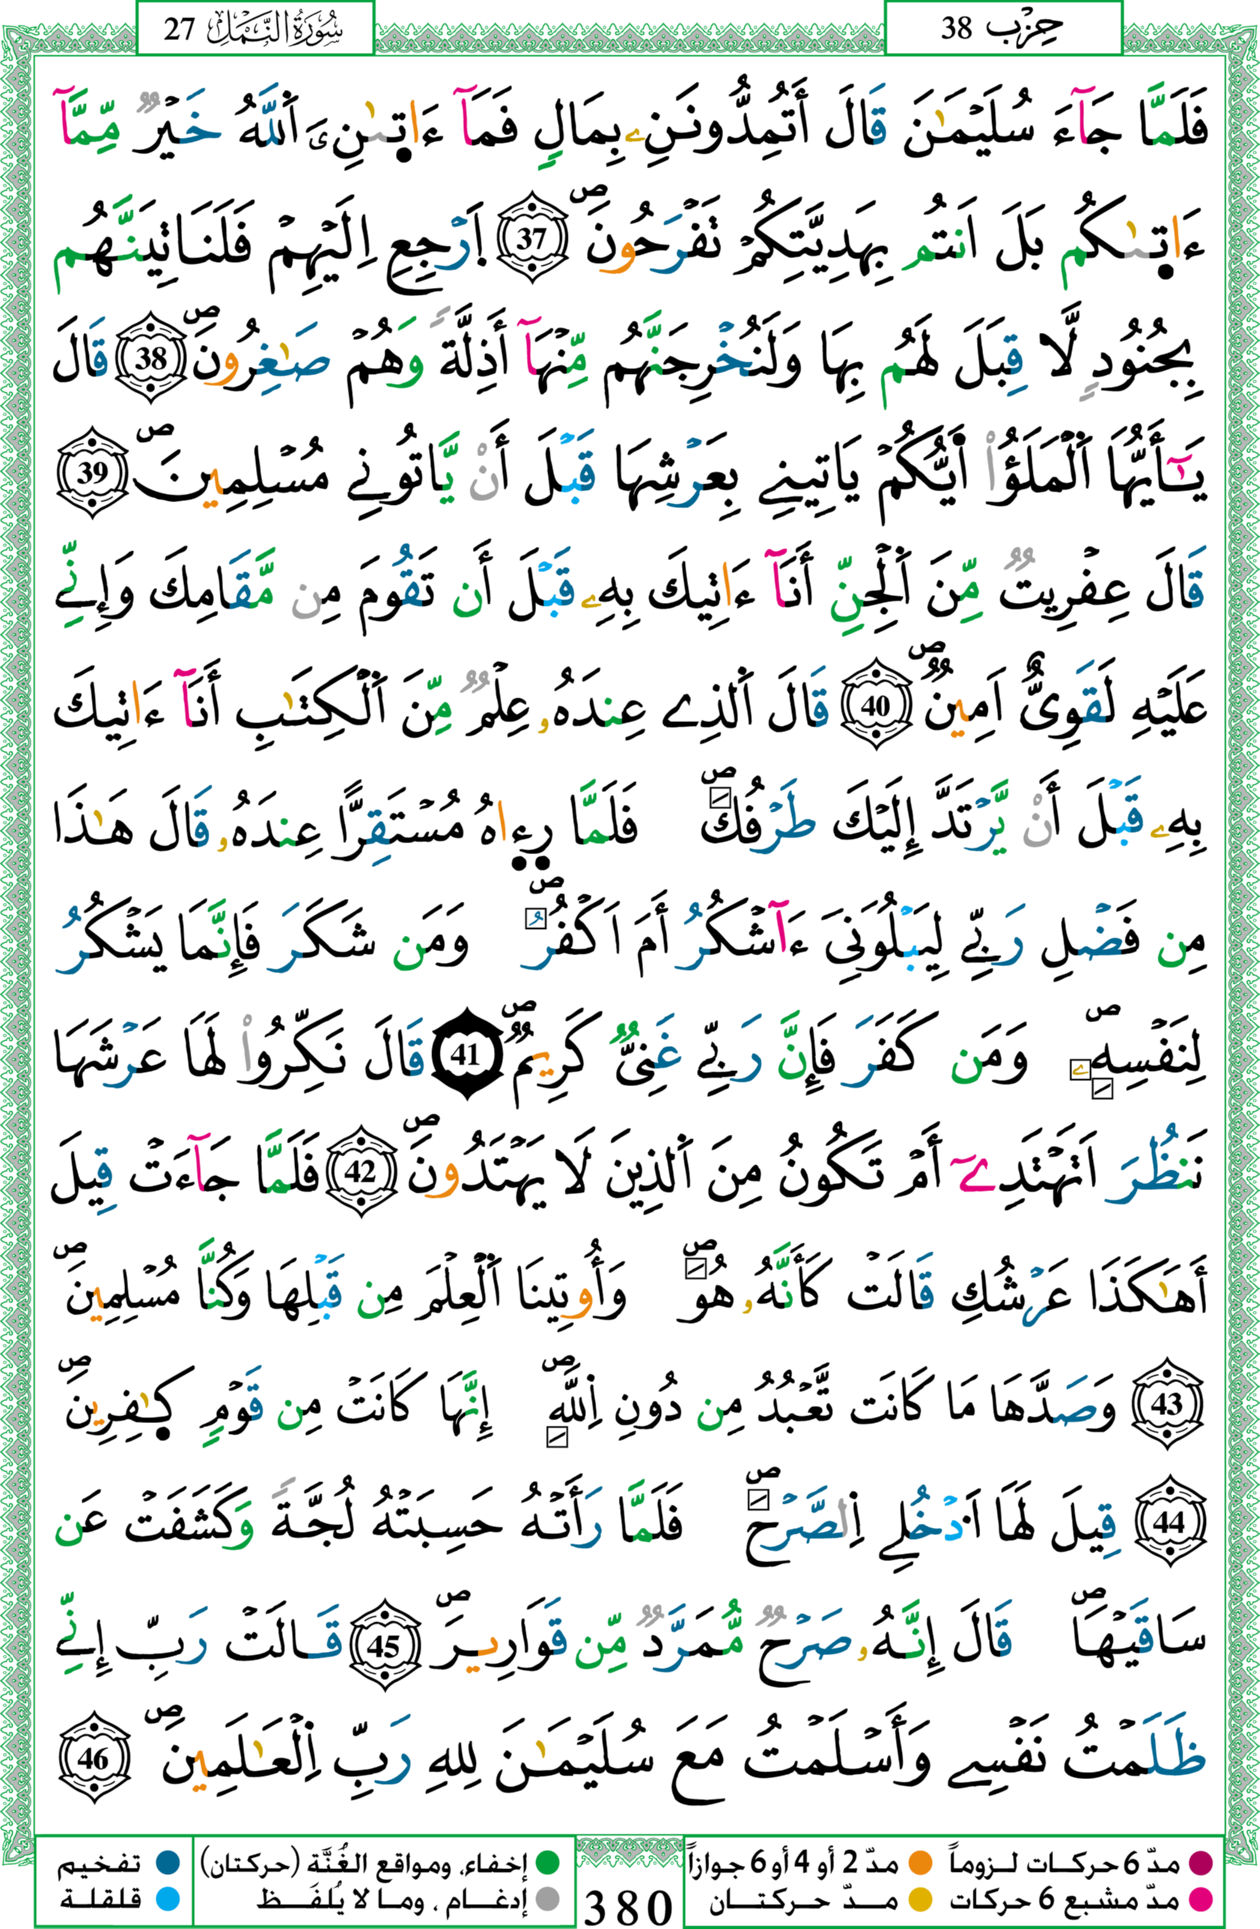 سُورَةُ النَّمْلِ 27
حِزْب 38
فَلَمَّا جَآءَ سُلَيْمَٰنَ قَالَ أَتُمِدُّونَنِۦ بِمَالٍ فَمَآ ءَاتٜىٰنِۦَ اَ۬للَّهُ خَيْرٌ مِّمَّآ
ءَاتٜىٰكُم بَلَ اَنتُم بِهَدِيَّتِكُمْ تَفْرَحُونَۖ 37 اَ۪رْجِعِ اِلَيْهِمْ فَلَنَاتِيَنَّهُم
بِجُنُودٍ لَّا قِبَلَ لَهُم بِهَا وَلَنُخْرِجَنَّهُم مِّنْهَآ أَذِلَّةً وَهُمْ صَٰغِرُونَۖ 38 قَالَ
يَٰٓأَيُّهَا اَ۬لْمَلَؤُاْ اَيُّكُمْ يَاتِينِے بِعَرْشِهَا قَبْلَ أَنْ يَّاتُونِے مُسْلِمِينَۖ 39
قَالَ عِفْرِيتٌ مِّنَ اَ۬لْجِنِّ أَنَآ ءَاتِيكَ بِهِۦ قَبْلَ أَن تَقُومَ مِن مَّقَامِكَ وَإِنِّے
عَلَيْهِ لَقَوِيٌّ اَمِينٌۖ 40 قَالَ اَ۬لذِے عِندَهُۥ عِلْمٌ مِّنَ اَ۬لْكِتَٰبِ أَنَآ ءَاتِيكَ
بِهِۦ قَبْلَ أَنْ يَّرْتَدَّ إِلَيْكَ طَرْفُكَۖ فَلَمَّا رٜءٜاهُ مُسْتَقِرًّا عِندَهُۥ قَالَ هَٰذَا
مِن فَضْلِ رَبِّے لِيَبْلُوَنِيَ ءَآشْكُرُ أَمَ اَكْفُرُۖ وَمَن شَكَرَ فَإِنَّمَا يَشْكُرُ
لِنَفْسِهِۦۖ وَمَن كَفَرَ فَإِنَّ رَبِّے غَنِيٌّ كَرِيمٌۖ 41 قَالَ نَكِّرُواْ لَهَا عَرْشَهَا
نَنظُرَ اَتَهْتَدِےٓ أَمْ تَكُونُ مِنَ اَ۬لذِينَ لَا يَهْتَدُونَۖ 42 فَلَمَّا جَآءَتْ قِيلَ
أَهَٰكَذَا عَرْشُكِ قَالَتْ كَأَنَّهُۥ هُوَۖ وَأُوتِينَا اَ۬لْعِلْمَ مِن قَبْلِهَا وَكُنَّا مُسْلِمِينَۖ
43 وَصَدَّهَا مَا كَانَت تَّعْبُدُ مِن دُونِ اِ۬للَّهِۖ إِنَّهَا كَانَتْ مِن قَوْمٍ كٰٜفِرِينَۖ
44 قِيلَ لَهَا اَ۟دْخُلِے اِ۬لصَّرْحَۖ فَلَمَّا رَأَتْهُ حَسِبَتْهُ لُجَّةً وَكَشَفَتْ عَن
سَاقَيْهَاۖ قَالَ إِنَّهُۥ صَرْحٌ مُّمَرَّدٌ مِّن قَوَارِيرَۖ 45 قَالَتْ رَبِّ إِنِّے
ظَلَمْتُ نَفْسِے وَأَسْلَمْتُ مَعَ سُلَيْمَٰنَ لِلهِ رَبِّ اِ۬لْعَٰلَمِينَۖ 46
مدّ 6 حركات لـزوماً مدّ 2 أو 4 أو 6 جوازاً
مدّ مشبع 6 حركات مـدّ حـركتـان
380
إخفاء، ومواقع الغُنَّة (حركتان) تفخيم
إدغـام ، ومـا لا يُلفَـظ قلقلـة